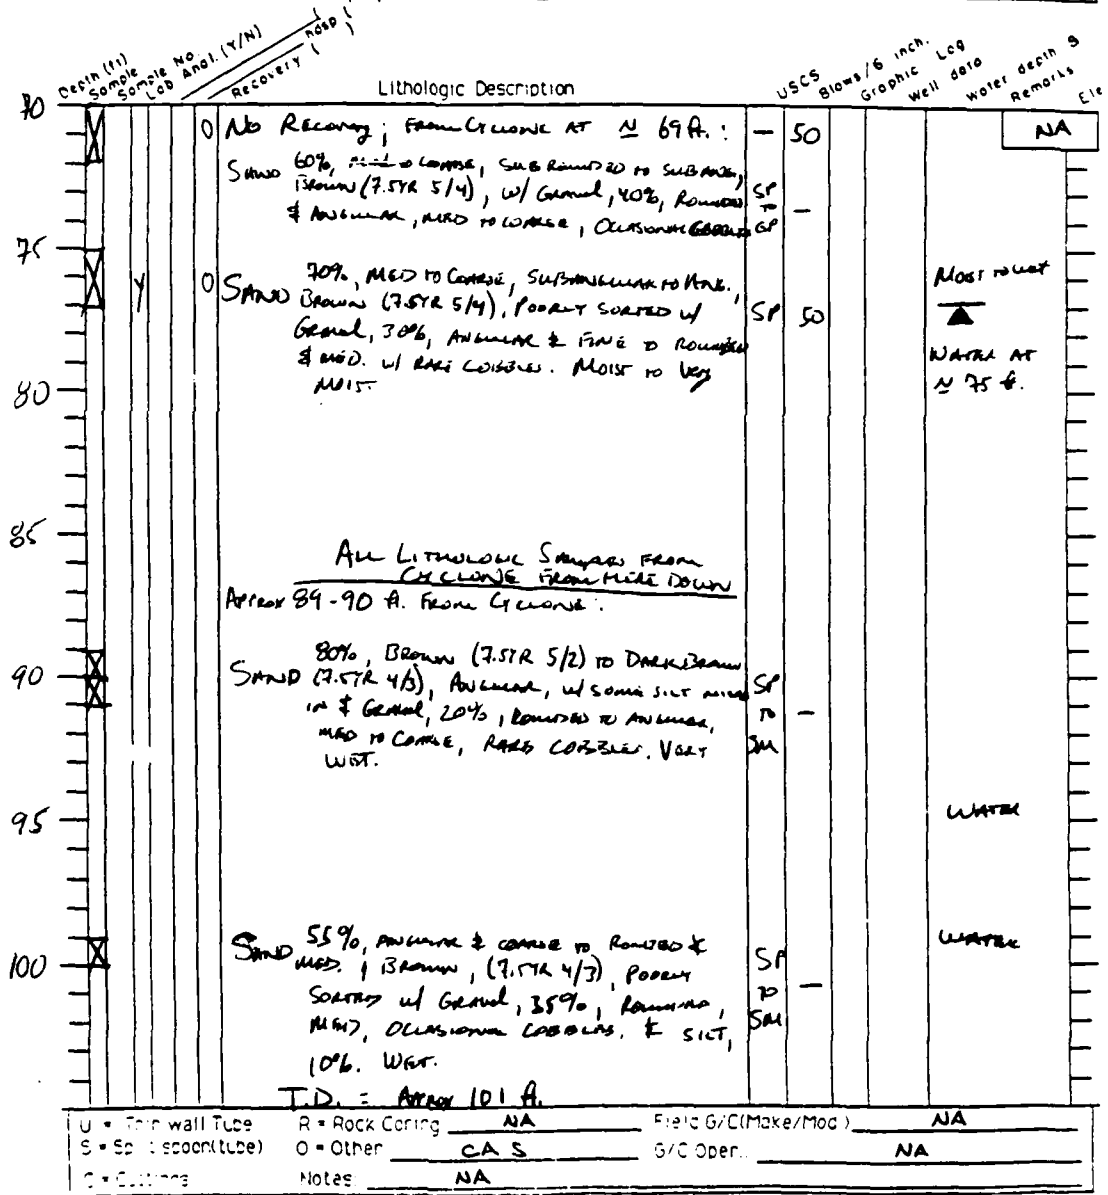 Depth (ft)
Sample
Sample No.
Lab Anal. (Y/N)
Recovery ( )
Lithologic Description
USCS
Blows/6 inch.
Graphic Log
Well data
Water depth
Remarks
Ele
70
0 No Recovery; From Cyclone at ~ 69 ft.: - 50 NA
Sand 60%, to coarse, sub rounded to subang,
Brown (7.5YR 5/4), w/ Gravel, 40%, Rounded SP to
& Angular, med to coarse, occasional cobbles GP -
75
Y 0 Sand 70%, med to coarse, subangular to ang., Moist to wet
Brown (7.5YR 5/4), poorly sorted w/ SP 50
Gravel, 30%, angular & fine to rounded
& med. w/ rare cobbles. Moist to very Water at
80 moist. ~ 75 ft.
85
All Lithologic Samples from
Cyclone from here down
Approx 89-90 ft. From Cyclone:
90 Sand 80%, Brown (7.5YR 5/2) to Dark Brown
(7.5YR 4/3), Angular, w/ some silt mixed SP
in & Gravel, 20%, rounded to angular, to -
med to coarse, rare cobbles. Very SM
wet.
95 Water
100 Sand 55%, angular & coarse to rounded & Water
med., Brown, (7.5YR 4/3), poorly SP
sorted w/ Gravel, 35%, rounded, to -
med, occasional cobbles, & silt, SM
10%. Wet.
T.D. = Approx 101 ft.
U = Thin wall Tube R = Rock Coring NA Field G/C(Make/Mod.) NA
S = Split spoon(tube) O = Other CAS G/C Oper. NA
C = Cuttings Notes: NA